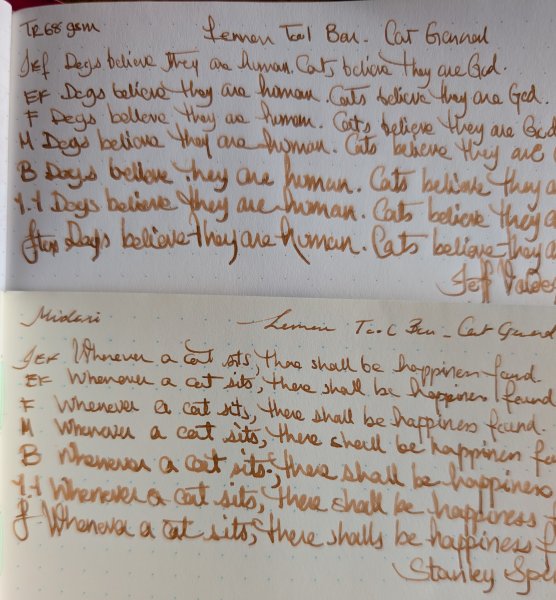 TR 68 gsm Lennon Tool Bar - Cat General
Jef Dogs believe they are human. Cats believe they are God.
EF Dogs believe they are human. Cats believe they are God.
F Dogs believe they are human. Cats believe they are God
M Dogs believe they are human. Cats believe they are
B Dogs believe they are human. Cats believe they a
1.1 Dogs believe they are human. Cats believe they a
Dogs believe they are human. Cats believe they a
Jef Valdes
Midori Lennon Tool Bar - Cat General
JEF Whenever a cat sits, there shall be happiness found.
EF Whenever a cat sits, there shall be happiness found
F Whenever a cat sits, there shall be happiness found.
M Whenever a cat sits, there shall be happiness fo
B Whenever a cat sits, there shall be happiness
1.1 Whenever a cat sits, there shall be happiness f
f Whenever a cat sits, there shalls be happiness f
Stanley Spe